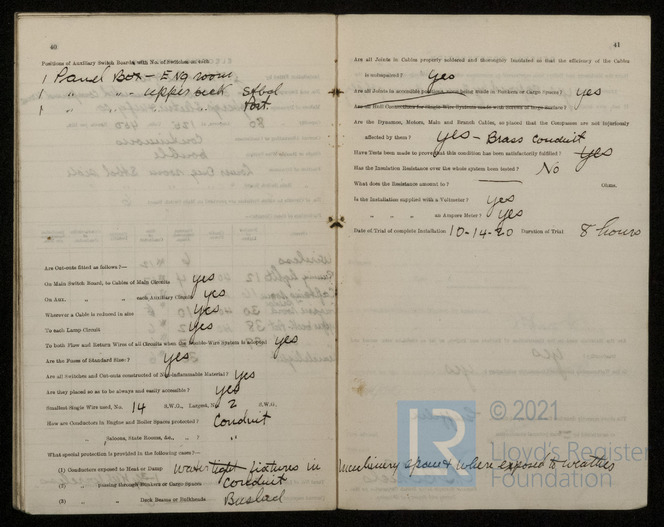 40
Positions of Auxiliary Switch Boards, with No. of Switches on each
1 Panel Box - Eng room
1 " " - upper deck Stbd
1 " " " " Port.
Are Cut-outs fitted as follows?—
On Main Switch Board, to Cables of Main Circuits yes
On Aux. " " each Auxiliary Circuit yes
Wherever a Cable is reduced in size yes
To each Lamp Circuit yes
To both Flow and Return Wires of all Circuits when the Double-Wire System is adopted yes
Are the Fuses of Standard Size? yes
Are all Switches and Cut-outs constructed of Non-inflammable Material? yes
Are they placed so as to be always and easily accessible? yes
Smallest Single Wire used, No. 14 S.W.G., Largest, No. 2 S.W.G.
How are Conductors in Engine and Boiler Spaces protected? Conduit
" Saloons, State Rooms, &c., " ? "
What special protection is provided in the following cases?—
(1) Conductors exposed to Heat or Damp Watertight fixtures in
(2) " passing through Bunkers or Cargo Spaces Conduit
(3) " " Deck Beams or Bulkheads Bushed
41
Are all Joints in Cables properly soldered and thoroughly insulated so that the efficiency of the Cables
is unimpaired? Yes
Are all Joints in accessible positions, none being made in Bunkers or Cargo Spaces? yes
Are all Hull Connections for Single-Wire Systems made with Screws of large surface?
Are the Dynamos, Motors, Main and Branch Cables, so placed that the Compasses are not injuriously
affected by them? Yes - Brass Conduit
Have Tests been made to prove that this condition has been satisfactorily fulfilled? Yes
Has the Insulation Resistance over the whole system been tested? No
What does the Resistance amount to? Ohms.
Is the Installation supplied with a Voltmeter? yes
" " " an Ampere Meter? yes
Date of Trial of complete Installation 10-14-20 Duration of Trial 8 hours
Machinery space & where exposed to weather
R
© 2021
Lloyd's Register
Foundation